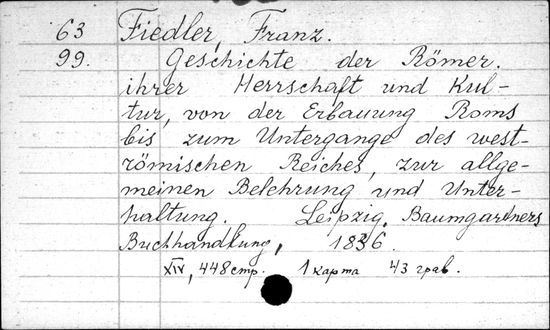 63 Fiedler, Franz.
99. Geschichte der Römer.
ihrer Herrschaft und Kul-
tur, von der Erbauung Roms
bis zum Untergange des west-
römischen Reiches, zur allge-
meinen Belehrung und Unter-
haltung. Leipzig, Baumgartners
Buchhandlung, 1836.
XIV, 448 стр. 1 карта 43 грав.